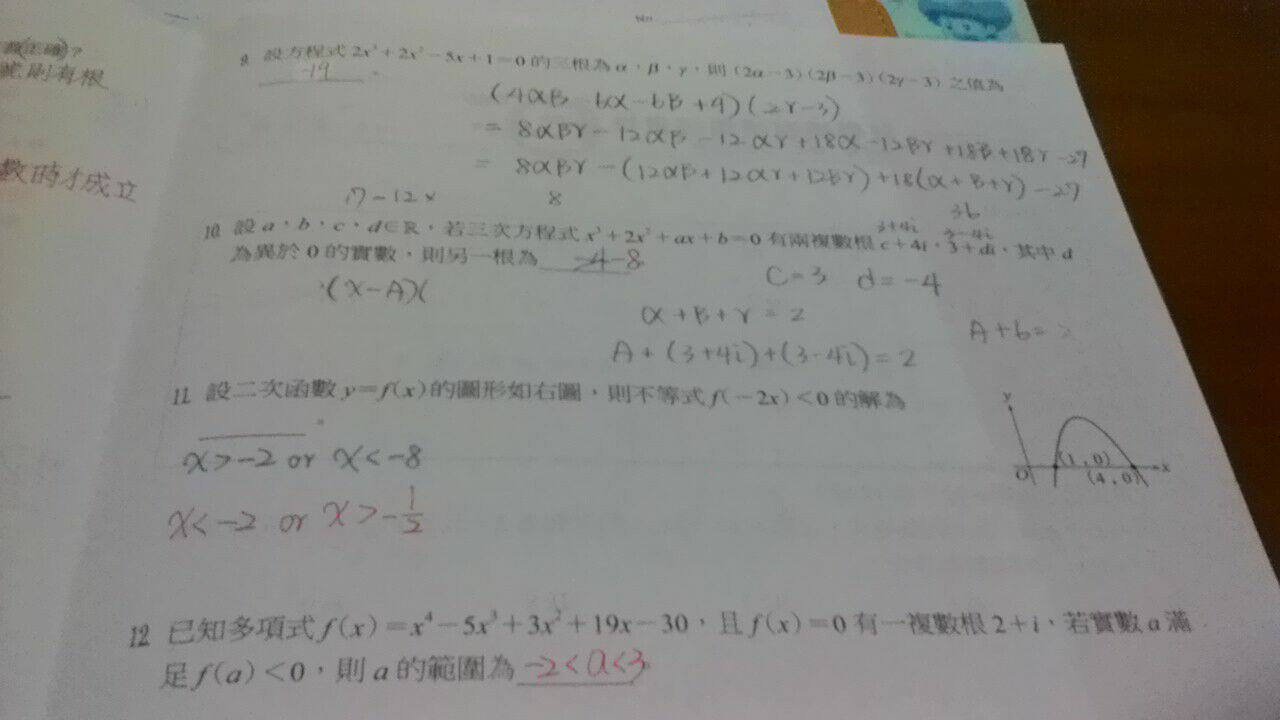 No.
數時才成立
9. 設方程式 2x³+2x²-5x+1=0 的三根為 α,β,γ,則 (2α-3)(2β-3)(2γ-3) 之值為
-19 。
(4αβ-6α-6β+9)(2γ-3)
= 8αβγ-12αβ-12αγ+18α-12βγ+18β+18γ-27
= 8αβγ-(12αβ+12αγ+12βγ)+18(α+β+γ)-27
8
36
3+4i
10. 設 a,b,c,d∈R,若三次方程式 x³+2x²+ax+b=0 有兩複數根 c+4i,3+di,其中 d
為異於 0 的實數,則另一根為 -8
C=3 d=-4
(x-A)(
α+β+γ=2
A+b=
A+(3+4i)+(3-4i)=2
11 設二次函數 y=f(x) 的圖形如右圖,則不等式 f(-2x)<0 的解為
。
y
x>-2 or x<-8
(1,0)
O
x
(4,0)
x<-2 or x>-1/2
12 已知多項式 f(x)=x⁴-5x³+3x²+19x-30,且 f(x)=0 有一複數根 2+i,若實數 a 滿
足 f(a)<0,則 a 的範圍為 -2<a<3